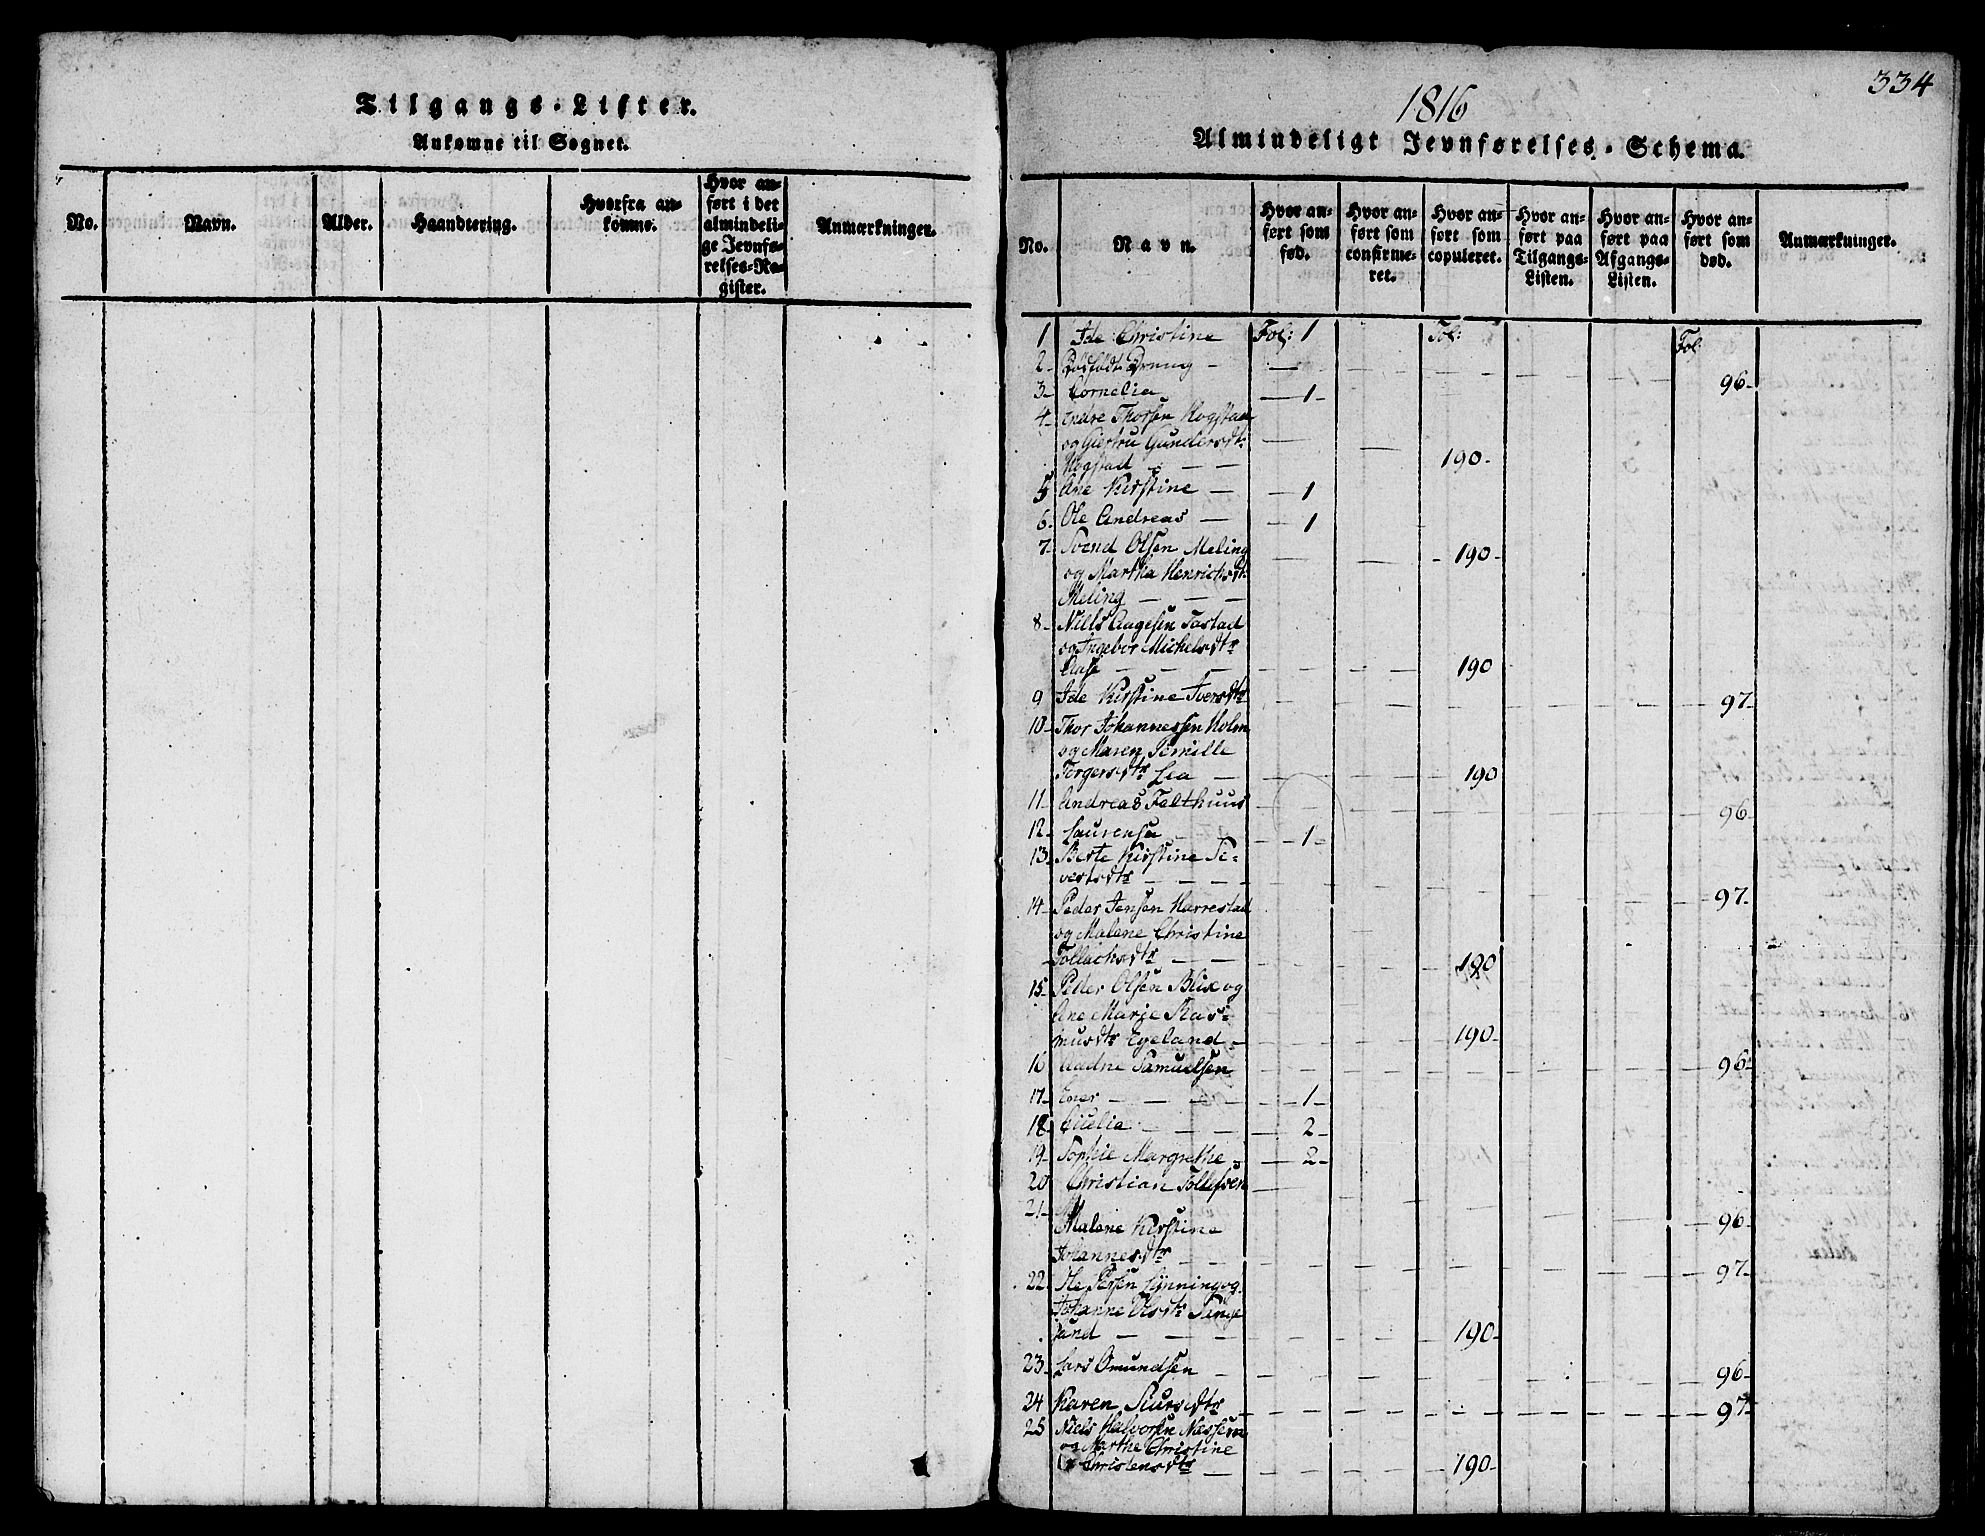 Tilgangs-Lister.
Ankomne til Sognet.
No.
Navn.
Alder.
Haandtering.
Hvorfra an-
komne.
Hvor an-
ført i det
almindeli-
ge Jevnfø-
relses-Re-
gister.
Anmærkninger.
334
1816
Almindeligt Jevnførelses-Schema.
No.
Navn.
Hvor an-
ført som
fød.
Hvor an-
ført som
confirme-
ret.
Hvor an-
ført som
copuleret.
Hvor an-
ført paa
Tilgangs-
Listen.
Hvor an-
ført paa
Afgangs-
Listen.
Hvor an-
ført som
død.
Anmærkninger.
1 Ide Christine Fol: 1 Fol: Fol:
2 Dødfødt Dreng 96
3 Cornelia 1
4 Endre Thorsen Hogstad
og Giertru Gundersdtr
Hogstad 190
5 Ane Kirstine 1
6 Ole Andreas 1
7 Svend Olsen Meling 190
og Martha Henrichsdtr
Meling
8 Niels Aagesen Tastad
og Ingebor Michelsdtr
Aase 190
9 Ide Kirstine Iversdtr 97
10 Thor Johannessen Holm
og Maren Pernille
Torgersdtr Lea 190
11 Andreas Falthuus 96
12 Laurensa 1
13 Berte Kirstine Si-
vertsdtr 97
14 Peder Jensen Harrestad
og Malene Christine
Tollachsdtr 190
15 Peder Olsen Blix og
Ane Marie Ras-
musdtr Egeland 190
16 Aadne Samuelsen 96
17 Ener 1
18 Cicilia 2
19 Sophie Margrethe 2
20 Christian Tollefsen 96
21 Malene Kirstine
Johannesdtr 97
22 Ole Persen Lynning og
Johanne Olsdtr Tunge
land 190
23 Lars Omundsen 96
24 Karen Siursdtr 97
25 Niels Halvorsen Nessem
og Marthe Christine
Christensdtr 190